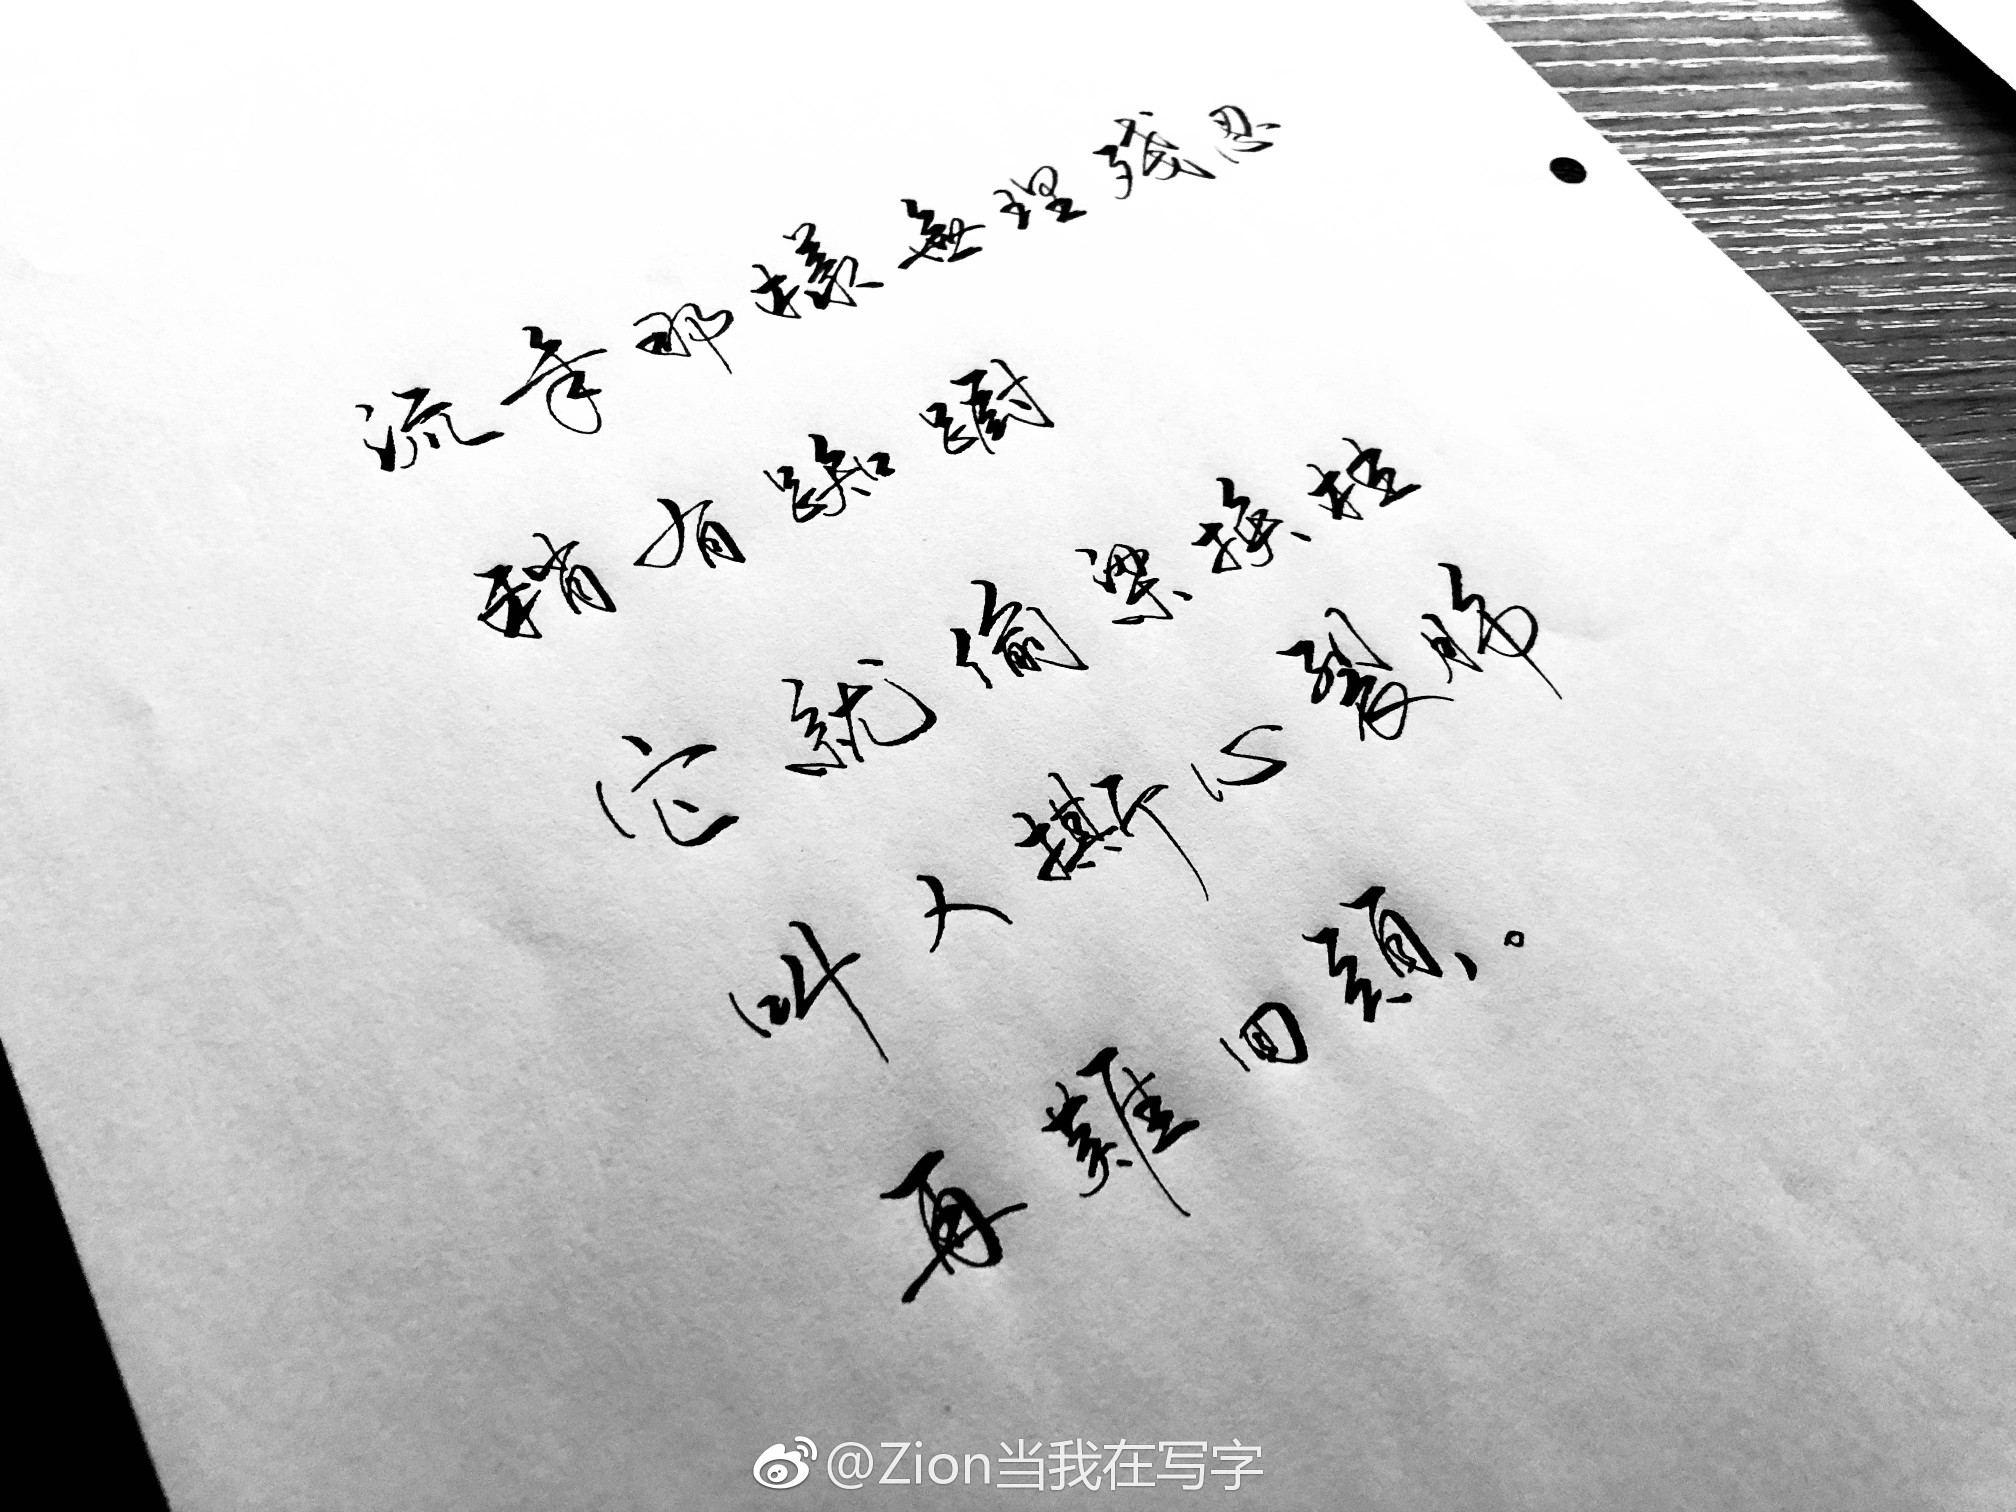 流年那樣無理殘忍
稍有踟躕
它就偷梁換柱
叫人撕心裂肺
再難回頭。
@Zion当我在写字